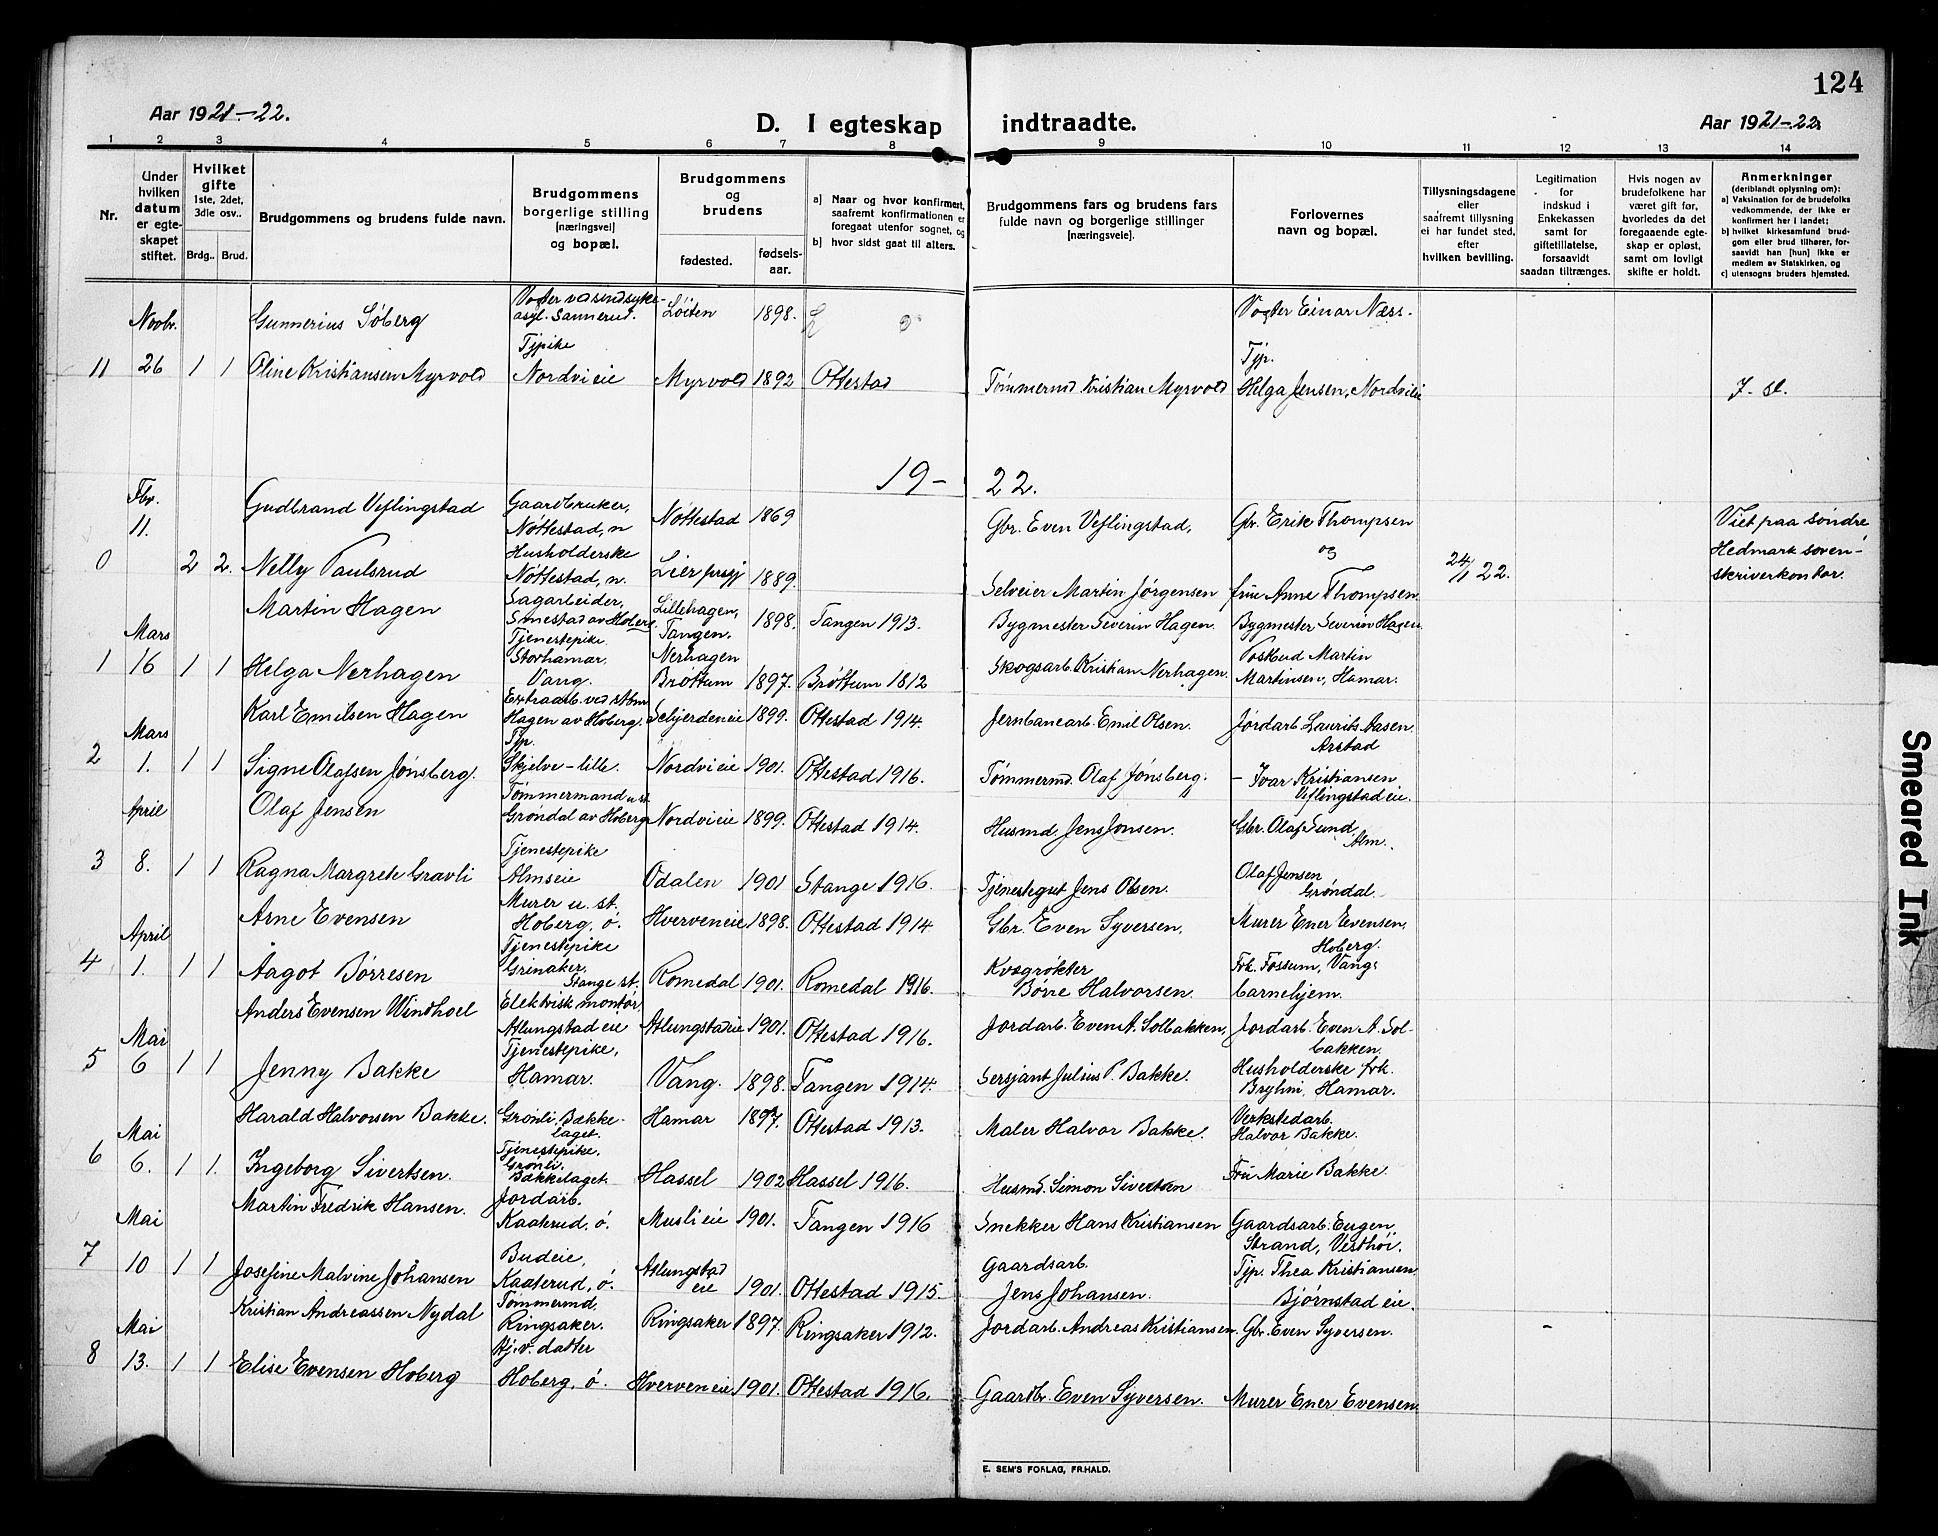 124
Aar 1921-22.
D. I egteskap indtraadte.
Aar 1921-22.
1 2 3 4 5 6 7 8 9 10 11 12 13 14
Nr.
Under hvilken datum er egteskapet stiftet.
Hvilket gifte 1ste, 2det, 3dle osv..
Brdg.. Brud.
Brudgommens og brudens fulde navn.
Brudgommens borgerlige stilling [næringsvei] og bopæl.
Brudgommens og brudens
fødested.
fødsels-aar.
a) Naar og hvor konfirmert, saafremt konfirmationen er foregaat utenfor sognet, og
b) hvor sidst gaat til alters.
Brudgommens fars og brudens fars fulde navn og borgerlige stillinger [næringsveie].
Forlovernes navn og bopæl.
Tillysningsdagene eller saafremt tillysning ei har fundet sted, efter hvilken bevilling.
Legitimation for indskud i Enkekassen samt for giftetillatelse, forsaavidt saadan tiltrænges.
Hvis nogen av brudefolkene har været gift før, hvorledes da det foregaaende egteskap er opløst, samt om lovligt skifte er holdt.
Anmerkninger (deriblandt oplysning om):
a) Vaksination for de brudefolks vedkommende, der ikke er konfirmert her i landet;
b) hvilket kirkesamfund brudgom eller brud tilhører, forsaavidt han [hun] ikke er medlem av Statskirken, og
c) utensogns bruders hjemsted.
Novbr. Gunnerius Søberg Vogter ved sindsyke-asyl. Sannerud. Løiten 1898. Vogter Einar Næss.
11 26 1 1 Oline Kristiansen Myrvold Tjpike Nordvi eie Myrvold 1892 Ottestad Tømmermd Kristian Myrvold Tjp. Helga Jensen, Nordvi eie
19- 22.
Fbr. 11. Gudbrand Veflingstad Gaardbruker, Nøttestad, n Nøttestad 1869 Gbr. Even Veflingstad, Gbr. Erik Thompsen og Viet paa søndre
0 2 2. Nelly Paulsrud Husholderske Nøttestad, n. Lier prgj 1889. Selveier Martin Jørgensen frue Anne Thompsen. 24/1 22. Hedmark soren-skriverkontor.
Mars Martin Hagen Sagarbeider, Smestad av Hoberg. Lillehagen, Tangen. 1898. Tangen 1913. Bygmester Severin Hagen. Bygmester Severin Hagen.
1 16 1 1 Helga Nerhagen Tjenestepike Storhamar Vang. Nerhagen Brøttum 1897. Brøttum 1812 Skogsarb. Kristian Nerhagen. Postbud Martin Martinsen, Hamar.
Mars Karl Emilsen Hagen Extraarb. ved stbn Hagen av Hoberg. Schjerden eie 1899. Ottestad 1914. Jernbanearb. Emil Olsen. Jordarb. Laurits Aasen Arstad
2 1. 1 1 Signe Olafsen Jønsberg. Tjp. Skjelve-lille. Nordvi eie 1901. Ottestad 1916. Tømmermd. Olaf Jønsberg. - Ivar Kristiansen Veflingstad eie.
April Olaf Jensen Tømmermand u st. Grøndal av Hoberg. Nordvi eie 1899. Ottestad 1914. Husmd. Jens Jonsen. Gbr. Olaf Sund, Alm.
3 8. 1 1 Ragna Margrete Gravli Tjenestepike Almseie Odalen 1901 Stange 1916. Tjenestegut Jens Olsen. Olaf Jensen Grøndal.
April Arne Evensen Murer u. st. Hoberg, ø. Hverven eie 1898. Ottestad 1914 Gbr. Even Syversen. Murer Ener Evensen, Hoberg.
4 1. 1 1 Aagot Børresen Tjenestepike Grinaker, Stange st. Romedal 1901. Romedal 1916. Kvægrøkter Børre Halvorsen. Frk. Fossum, Vangs barnehjem.
Mai Anders Evensen Windhoel Elektrisk montør Atlungstad eie Atlungstad eie 1901. Ottestad 1916. Jordarb. Even A. Solbakken, Jordarb. Even A. Sol-bakken.
5 6 1 1 Jenny Bakke Tjenestepike, Hamar. Vang. 1898. Tangen 1914. Sersjant Julius P. Bakke. Husholderske frk. Bryhni, Hamar.
Mai Harald Halvorsen Bakke. Grønli. Bække-laget. Hamar 1897. Ottestad 1913. Maler Halvor Bakke. Verkstedarb. Halvor Bakke.
6 6. 1 1. Ingeborg Sivertsen. Tjenestepike. Grønli. Bækkelaget. Hassel 1902 Hassel 1916. Husmd. Simon Sivertsen Fru Marie Bakke.
Mai Martin Fredrik Hansen. Jordarb. Kaaterud, ø. Musli eie 1901. Tangen 1916 Snekker Hans Kristiansen Gaardsarb. Eugen Strand, Vesthøi.
7 10 1 1 Josefine Malvine Johansen Budeie, Kaaterud, ø. Atlungstad eie 1901. Ottestad 1915. Gaardsarb. Jens Johansen. Tjp. Thea Kristiansen. Bjørnstad eie.
Mai Kristian Andreassen Nydal Tømmermd, Ringsaker. Ringsaker 1897. Ringsaker 1912. Jordarb. Andreas Kristiansen. Gbr. Even Syversen.
8 13. 1 1 Elise Evensen Hoberg Hj.v. datter Hoberg, ø. Hverven eie 1901. Ottestad 1916. Gaardbr. Even Syversen. Murer Ener Evensen.
E. SEM'S FORLAG, FR.HALD.
Smeared Ink